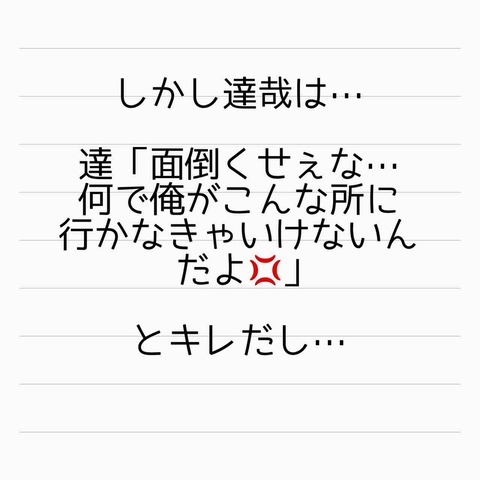 しかし達哉は…
達「面倒くせぇな…
何で俺がこんな所に
行かなきゃいけないん
だよ💢」
とキレだし…